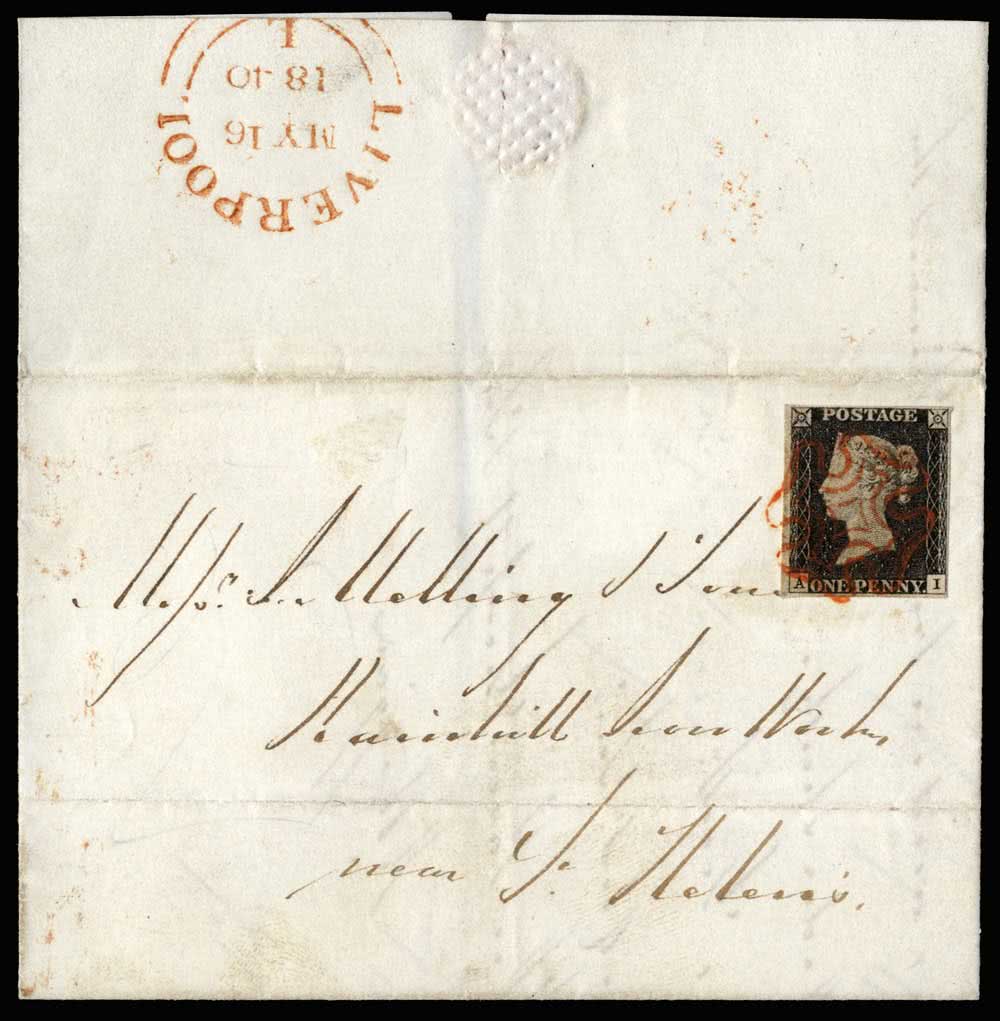 LIVERPOOL
MY 16
1840
L
POSTAGE
A ONE PENNY. I
Messrs. Melling & Son
Rainhill Iron Works
near St Helens.